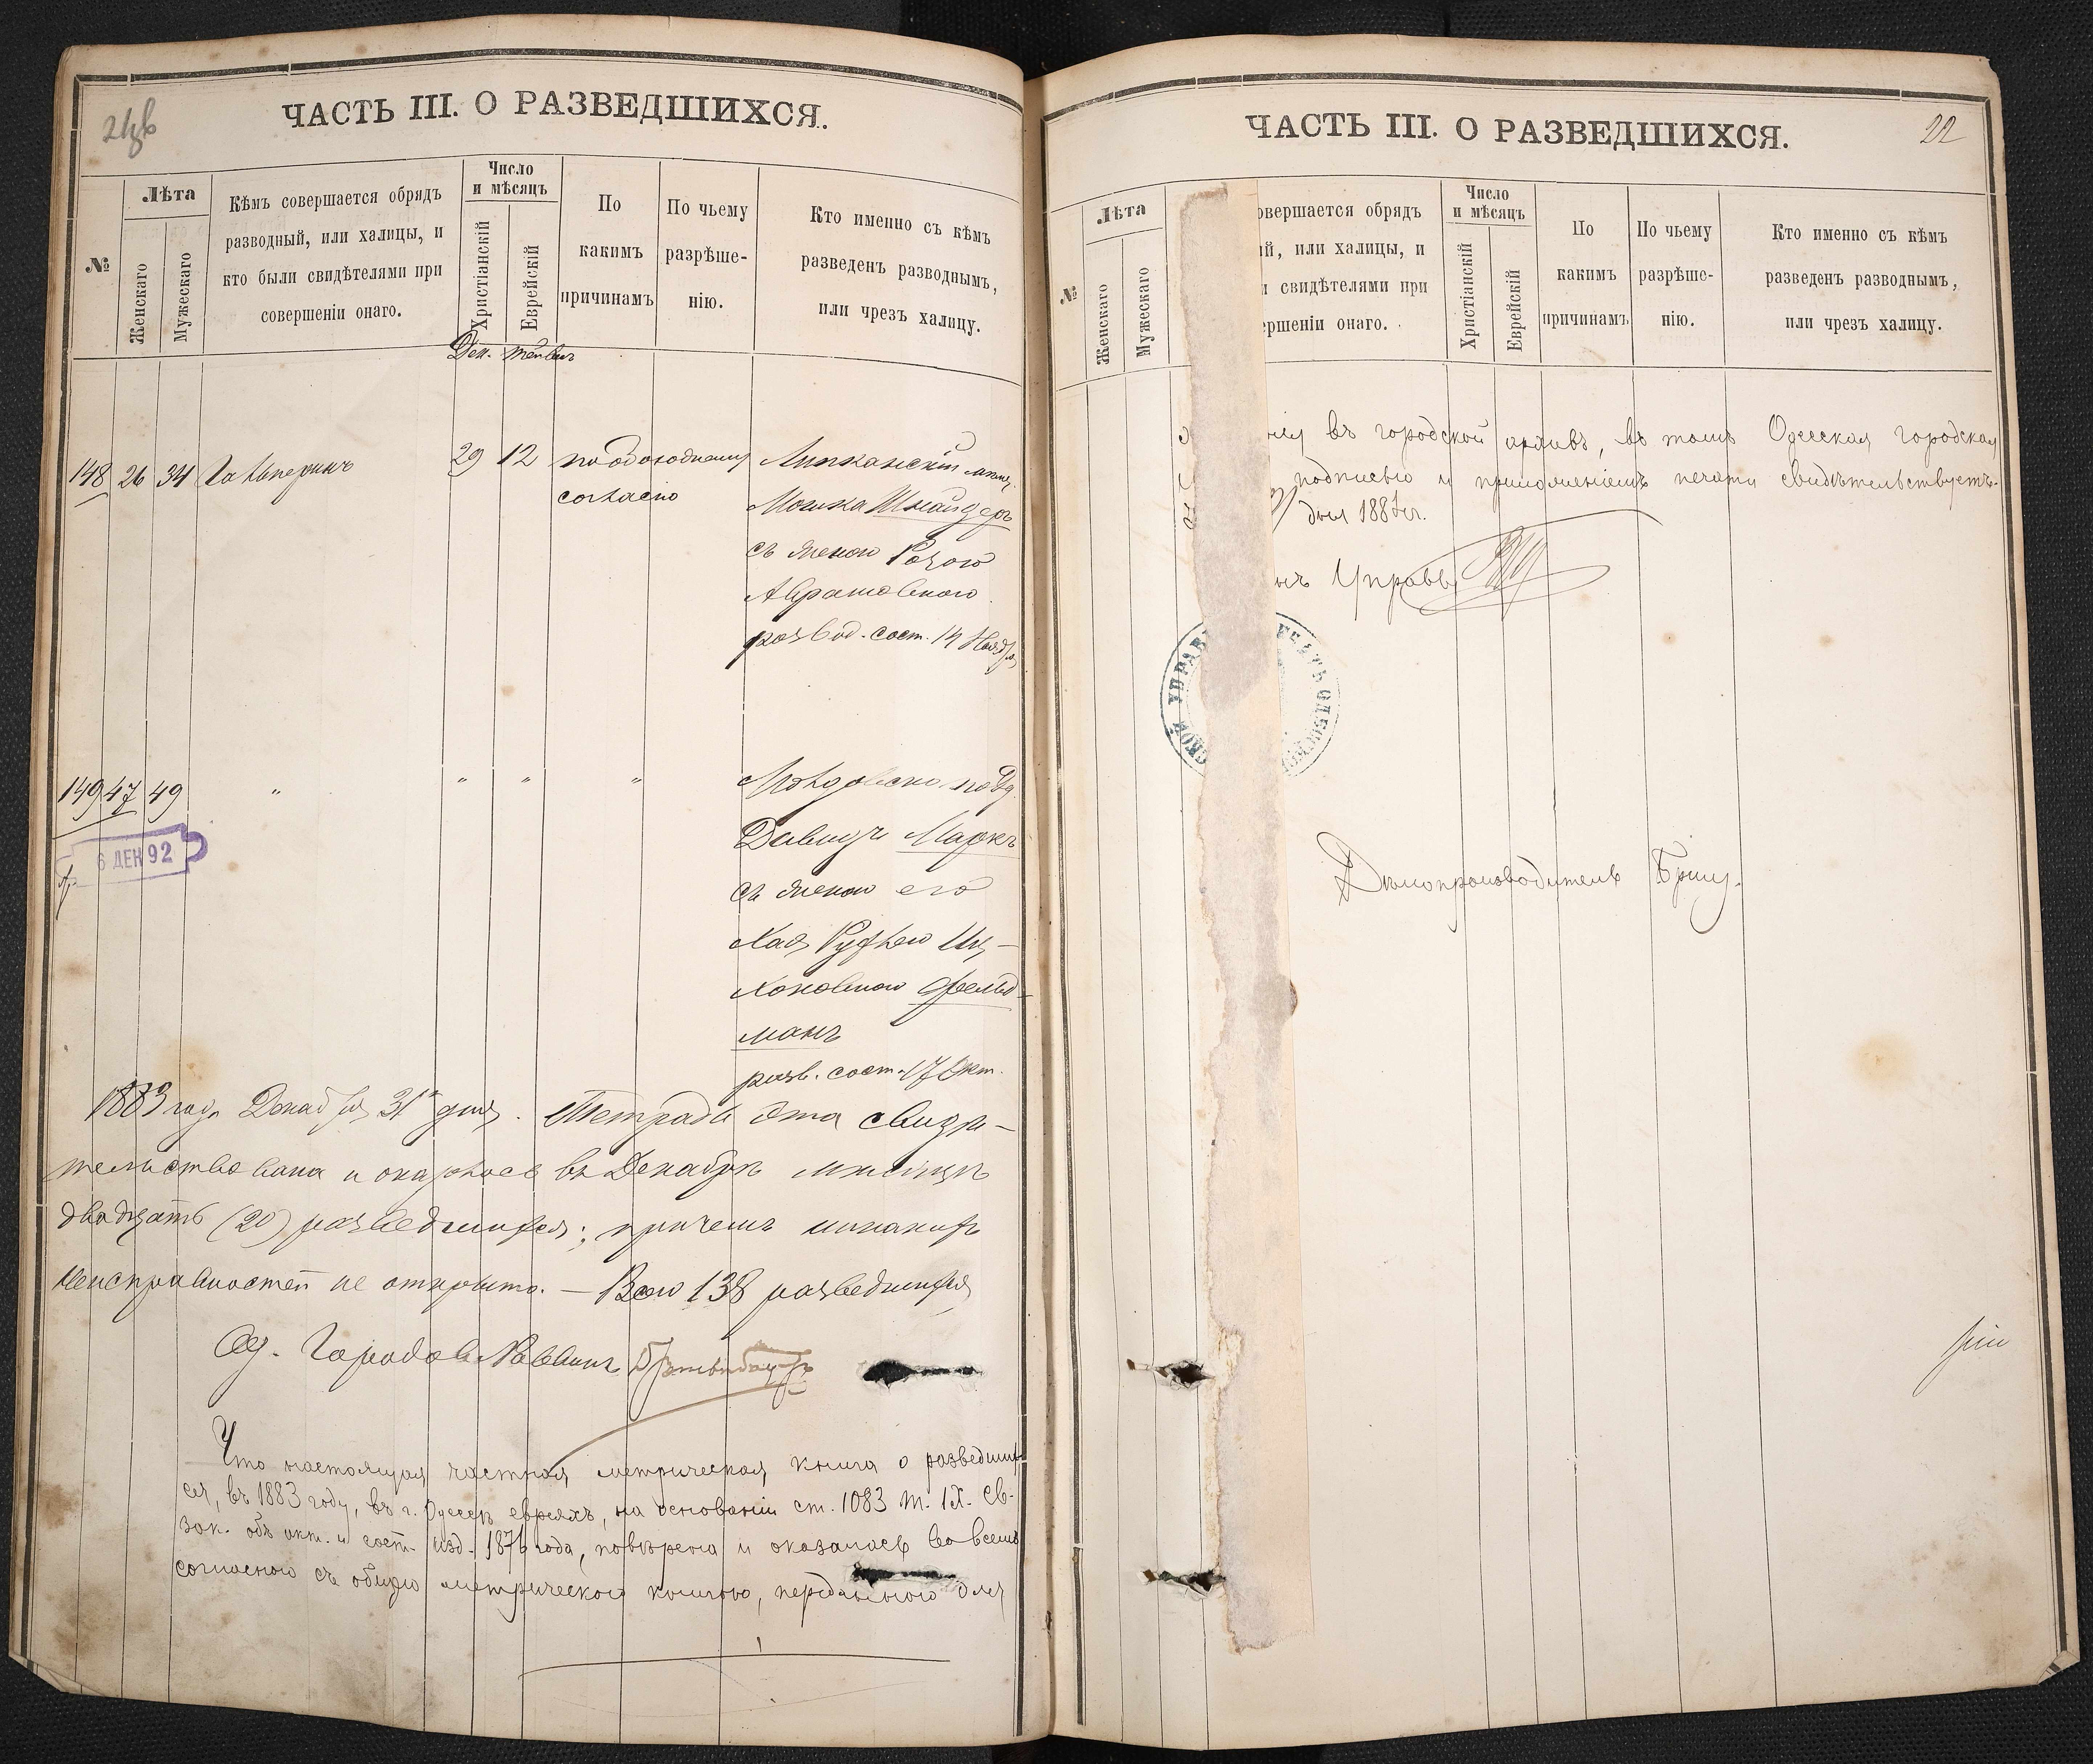 ЧАСТЬ III. О РАЗВЕДШИХСЯ.
№
Лѣта
Женскаго
Мужескаго
Кѣмъ совершается обрядъ
разводный, или халицы, и
кто были свидѣтелями при
совершеніи онаго.
Число
и мѣсяцъ
Христіанскій
Еврейскій
По
какимъ
причинамъ
По чьему
разрѣше-
нію.
Кто именно съ кѣмъ
разведенъ разводнымъ,
или чрезъ халицу.
Дек. Тейвис
148 26 34 Гальперинъ 29 12 по обоюдному
согласію
Липканскій мѣщ.
Мошка Шнайдеръ
съ женою Розою
Абрамовною
развод. сост. 14 Ноября
149 47 49 " " " "
Давидъ Маркъ
съ женою его
Хая Рухлею Иц-
ховною Фельд-
манъ
разв. сост. 17 Окт.
6 ДЕК 92
1883 года Декабря 31го дня. Тетрадь эта свидѣ-
тельствована и оказалось въ Декабрѣ мѣсяцѣ
двадцать (20) разведшихся; причемъ никакихъ
неисправностей не открыто. — Всего 138 разведшихся
Од. Городов. Раввинъ
Что настоящая частная метрическая книга о разведших-
ся, въ 1883 году, въ г. Одессѣ евреяхъ, на основаніи ст. 1083 т. IX. Св.
зак. объ акт. и сост. изд. 1876 года, повѣрена и оказалась во всемъ
согласною съ общею метрическою книгою, переданною для
ЧАСТЬ III. О РАЗВЕДШИХСЯ.
22
№
Лѣта
Женскаго
Мужескаго
овершается обрядъ
ый, или халицы, и
и свидѣтелями при
ершеніи онаго.
Число
и мѣсяцъ
Христіанскій
Еврейскій
По
какимъ
причинамъ
По чьему
разрѣше-
нію.
Кто именно съ кѣмъ
разведенъ разводнымъ,
или чрезъ халицу.
въ городской архивъ, въ томъ Одесская городская
подписью и приложеніемъ печати свидѣтельствуетъ.
дня 1887 г.
Управы
Дѣлопроизводитель